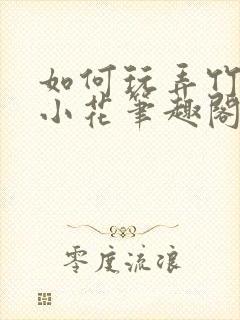 如何玩弄竹
小花笔趣阁
零度流浪